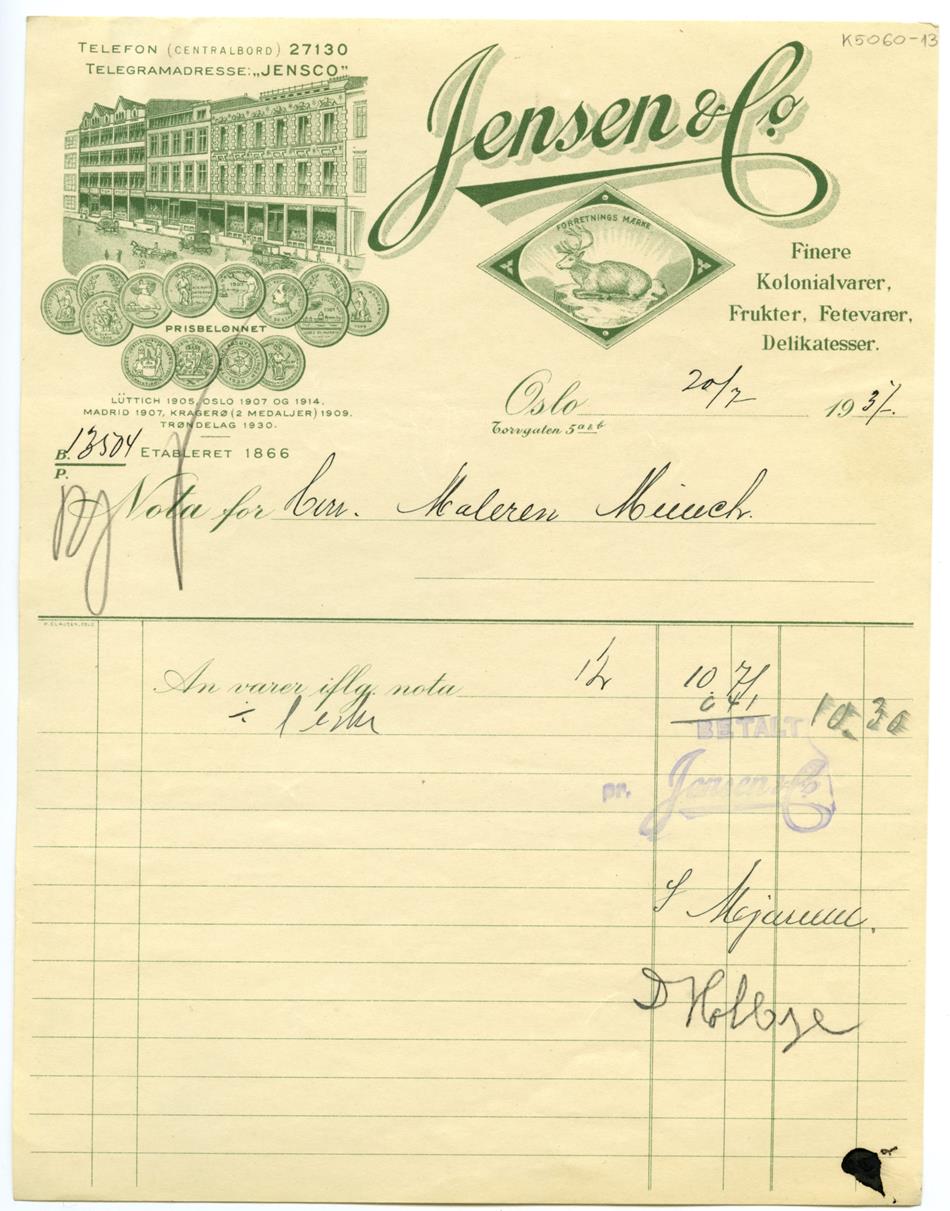 K5060-13
TELEFON (CENTRALBORD) 27130
TELEGRAMADRESSE: „JENSCO"
Jensen & Co.
FORRETNINGS MÆRKE
Finere
Kolonialvarer,
Frukter, Fetevarer,
Delikatesser.
PRISBELØNNET
LÜTTICH 1905, OSLO 1907 OG 1914.
MADRID 1907, KRAGERØ (2 MEDALJER) 1909.
TRØNDELAG 1930.
Oslo 20/7 1937.
Torvgaten 5 a & b
B. 13504 ETABLERET 1866
P.
Nota for Herr. Maleren Munch.
An varer iflg. nota 1/2 10 71
÷ 0 41 10.30
BETALT
pr. Jensen & Co